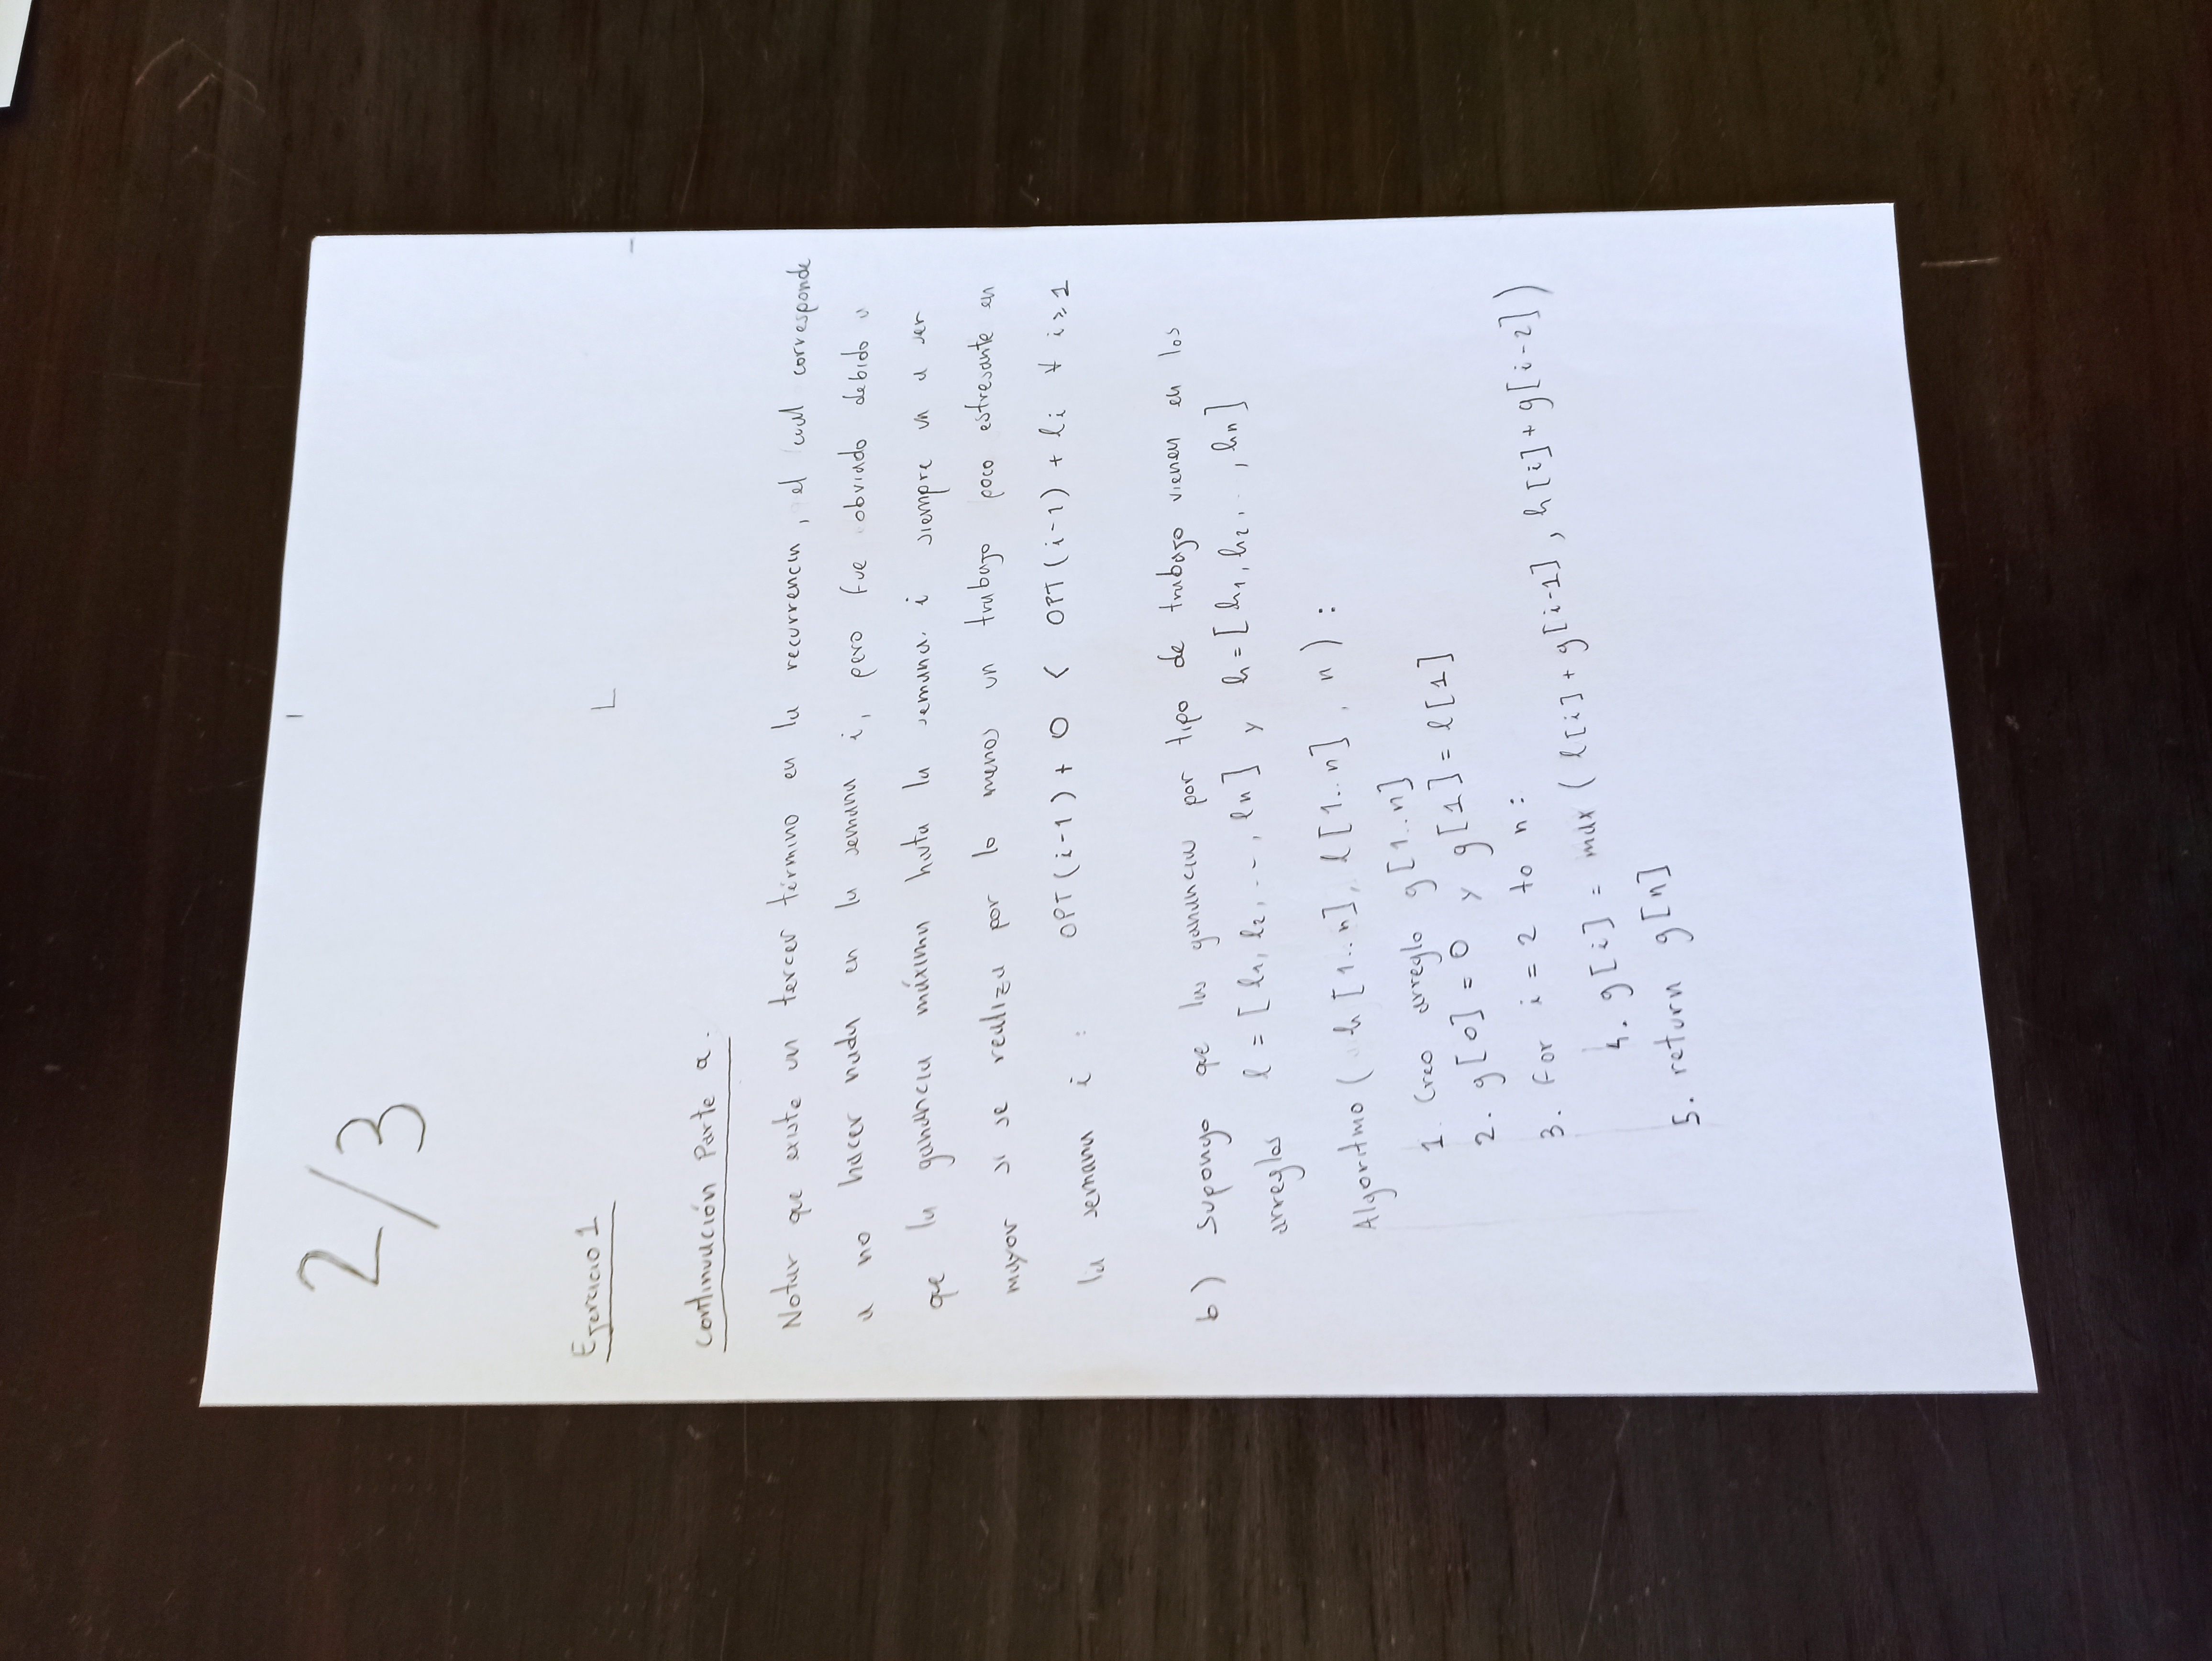 2/3
Ejercicio 1
Continuación Parte a.
Notar que existe un tercer término en la recurrencia, el cual corresponde
a no hacer nada en la semana i, pero fue obviado debido a
que la ganancia máxima hasta la semana i siempre va a ser
mayor si se realiza por lo menos un trabajo poco estresante en
la semana i : OPT(i-1) + 0 < OPT(i-1) + li ∀ i ≥ 1
b) Supongo que las ganancias por tipo de trabajo vienen en los
arreglos l = [l1, l2, ..., ln] y h = [h1, h2, ..., hn]
Algoritmo (h[1..n], l[1..n], n) :
1. Creo arreglo g[1..n]
2. g[0] = 0 y g[1] = l[1]
3. for i = 2 to n:
4. g[i] = max(l[i] + g[i-1], h[i] + g[i-2])
5. return g[n]